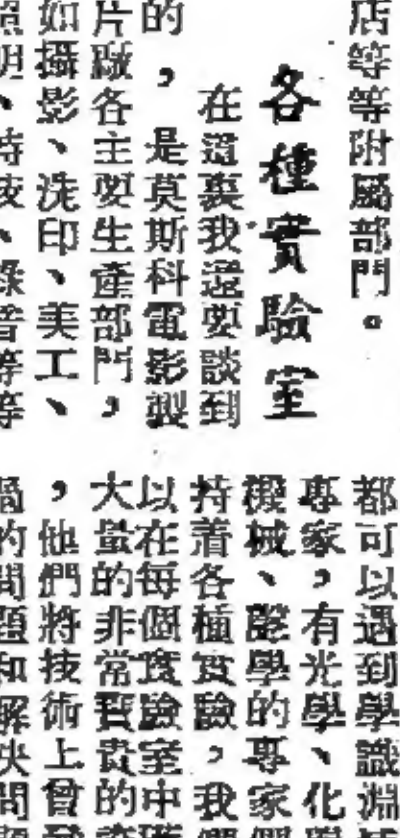 店等等附屬部門。
各種實驗室
在這裏我還要談到
的，是莫斯科電影製
片廠各主要生產部門，
如攝影、洗印、美工、
照明、特技、錄音等等
都可以遇到學識淵
專家，有光學、化
機械、聲學的專家
持着各種實驗，我
以在每個實驗室中
大量的非常寶貴的
，他們將技術上曾
過的問題和解決問